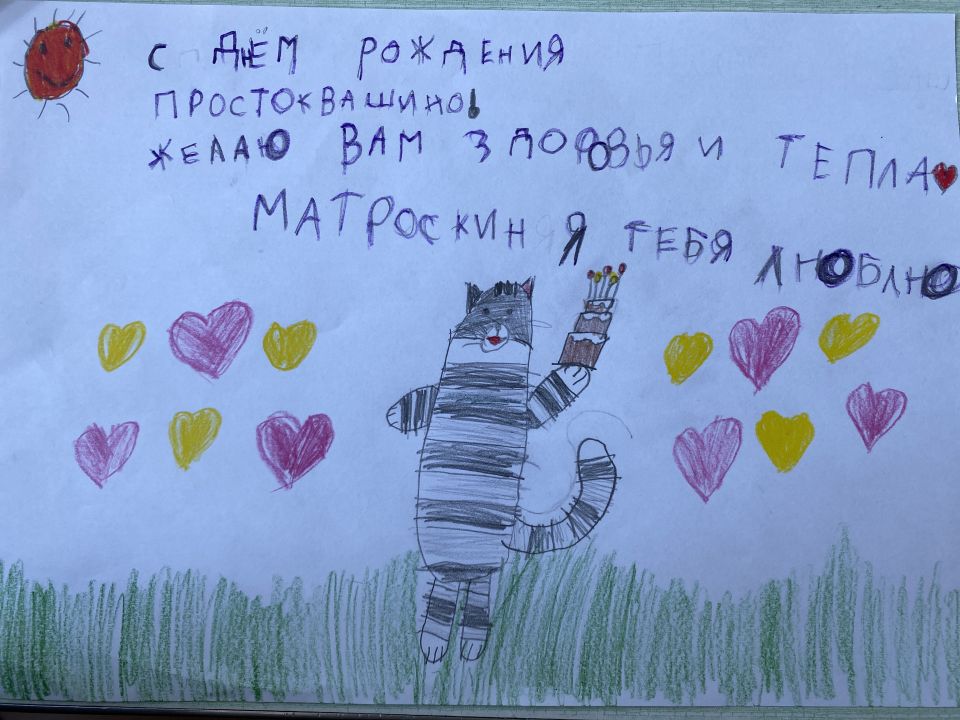 С ДНЁМ РОЖДЕНИЯ
ПРОСТОКВАШИНО!
ЖЕЛАЮ ВАМ ЗДОРОВЬЯ И ТЕПЛА
МАТРОСКИН Я ТЕБЯ ЛЮБЛЮ